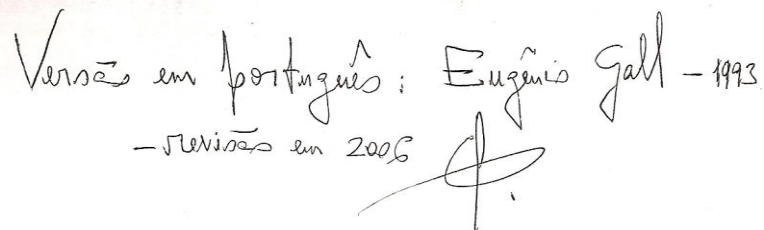 Versão em português: Eugênio Gall – 1993
– revisão em 2006